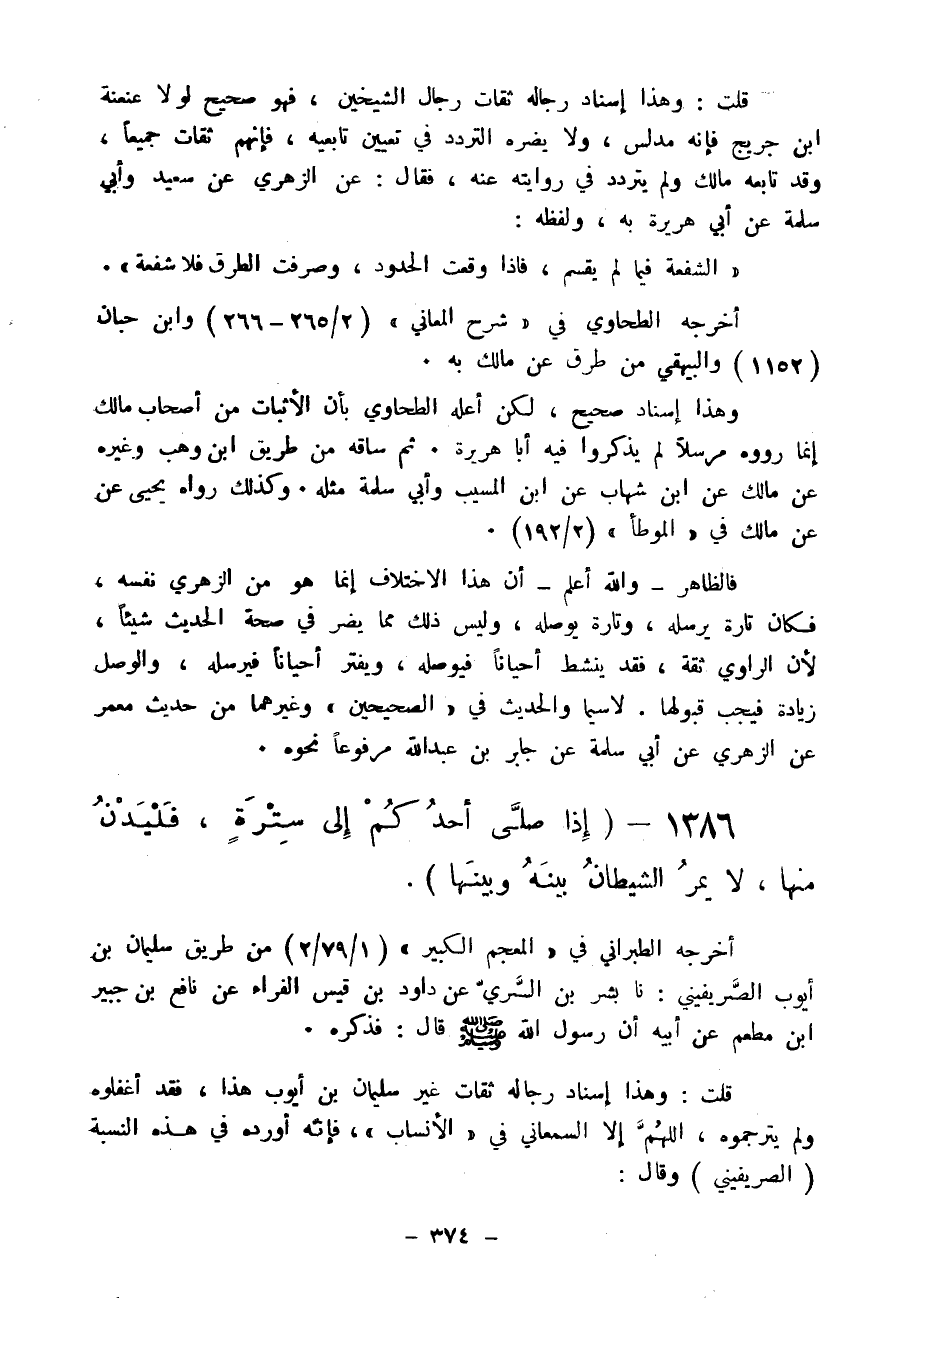 قلت : وهذا إسناد رجاله ثقات رجال الشيخين ، فهو صحيح لولا عنعنة
ابن جريج فإنه مدلس ، ولا يضره التردد في تعيين تابعيه ، فإنهم ثقات جميعاً ،
وقد تابعه مالك ولم يتردد في روايته عنه ، فقال : عن الزهري عن سعيد وأبي
سلمة عن أبي هريرة به ، ولفظه :
« الشفعة فيما لم يقسم ، فاذا وقعت الحدود ، وصرفت الطرق فلا شفعة » .
أخرجه الطحاوي في « شرح المعاني » ( ٢/ ٢٦٥ – ٢٦٦ ) وابن حبان
( ١١٥٢ ) والبيهقي من طرق عن مالك به .
وهذا إسناد صحيح ، لكن أعله الطحاوي بأن الأثبات من أصحاب مالك
إنما رووه مرسلاً لم يذكروا فيه أبا هريرة . ثم ساقه من طريق ابن وهب وغيره
عن مالك عن ابن شهاب عن ابن المسيب وأبي سلمة مثله . وكذلك رواه يحيى عن
عن مالك في « الموطأ » (٢/ ١٩٢) .
فالظاهر – والله أعلم – أن هذا الاختلاف إنما هو من الزهري نفسه ،
فكان تارة يرسله ، وتارة يوصله ، وليس ذلك مما يضر في صحة الحديث شيئاً ،
لأن الراوي ثقة ، فقد ينشط أحياناً فيوصله ، ويفتر أحياناً فيرسله ، والوصل
زيادة فيجب قبولها . لاسيما والحديث في « الصحيحين » وغيرهما من حديث معمر
عن الزهري عن أبي سلمة عن جابر بن عبدالله مرفوعاً نحوه .
١٣٨٦ – ( إِذا صلَّى أحدُكُمْ إِلى سِتْرَةٍ ، فَلْيَدْنُ
منها ، لا يمرُ الشيطانُ بينَهُ وبينَها ) .
أخرجه الطبراني في « المعجم الكبير » ( ١/ ٧٩/ ٢) من طريق سليمان بن
أيوب الصَّريفيني : نا بشر بن السَّري عن داود بن قيس الفراء عن نافع بن جبير
ابن مطعم عن أبيه أن رسول الله ﷺ قال : فذكره .
قلت : وهذا إسناد رجاله ثقات غير سليمان بن أيوب هذا ، فقد أغفلوه
ولم يترجموه ، اللهُمَّ إلا السمعاني في « الأنساب » ، فإنه أورده في هذه النسبة
( الصريفيني ) وقال :
- ٣٧٤ -